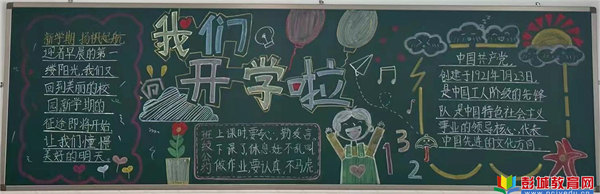 新学期 扬帆起航
迎着早晨的第一
缕阳光,我们又
回到美丽的校
园,新学期的
征途即将开始,
让我们憧憬
美好的明天。
我们
开学啦
班级公约
上课时要专心,勤发言
下课了,休息好不乱叫
做作业,要认真,不马虎
1 2 3
中国共产党,
创建于1921年7月23日,
是中国工人阶级的先锋
队 是中国特色社会主义
事业的领导核心,代表
中国先进的文化方向
彭城教育网